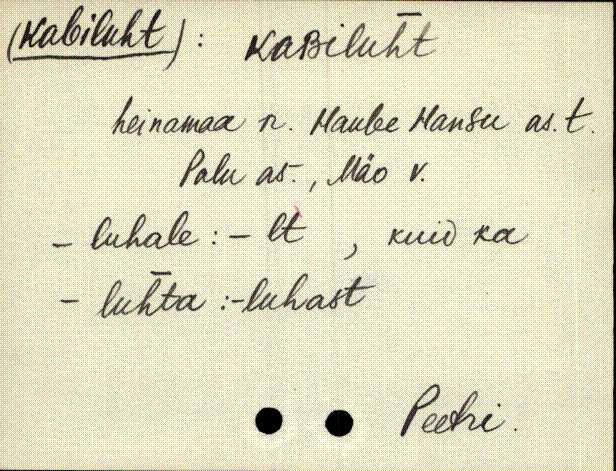 (Kabiluht): KaBiluh̄t
heinamaa n. Haube Hansu as. t.
Palu as., Mäo v.
- luhale : - lt , kuid ka
- luh̄ta : - luhast
Peetri.